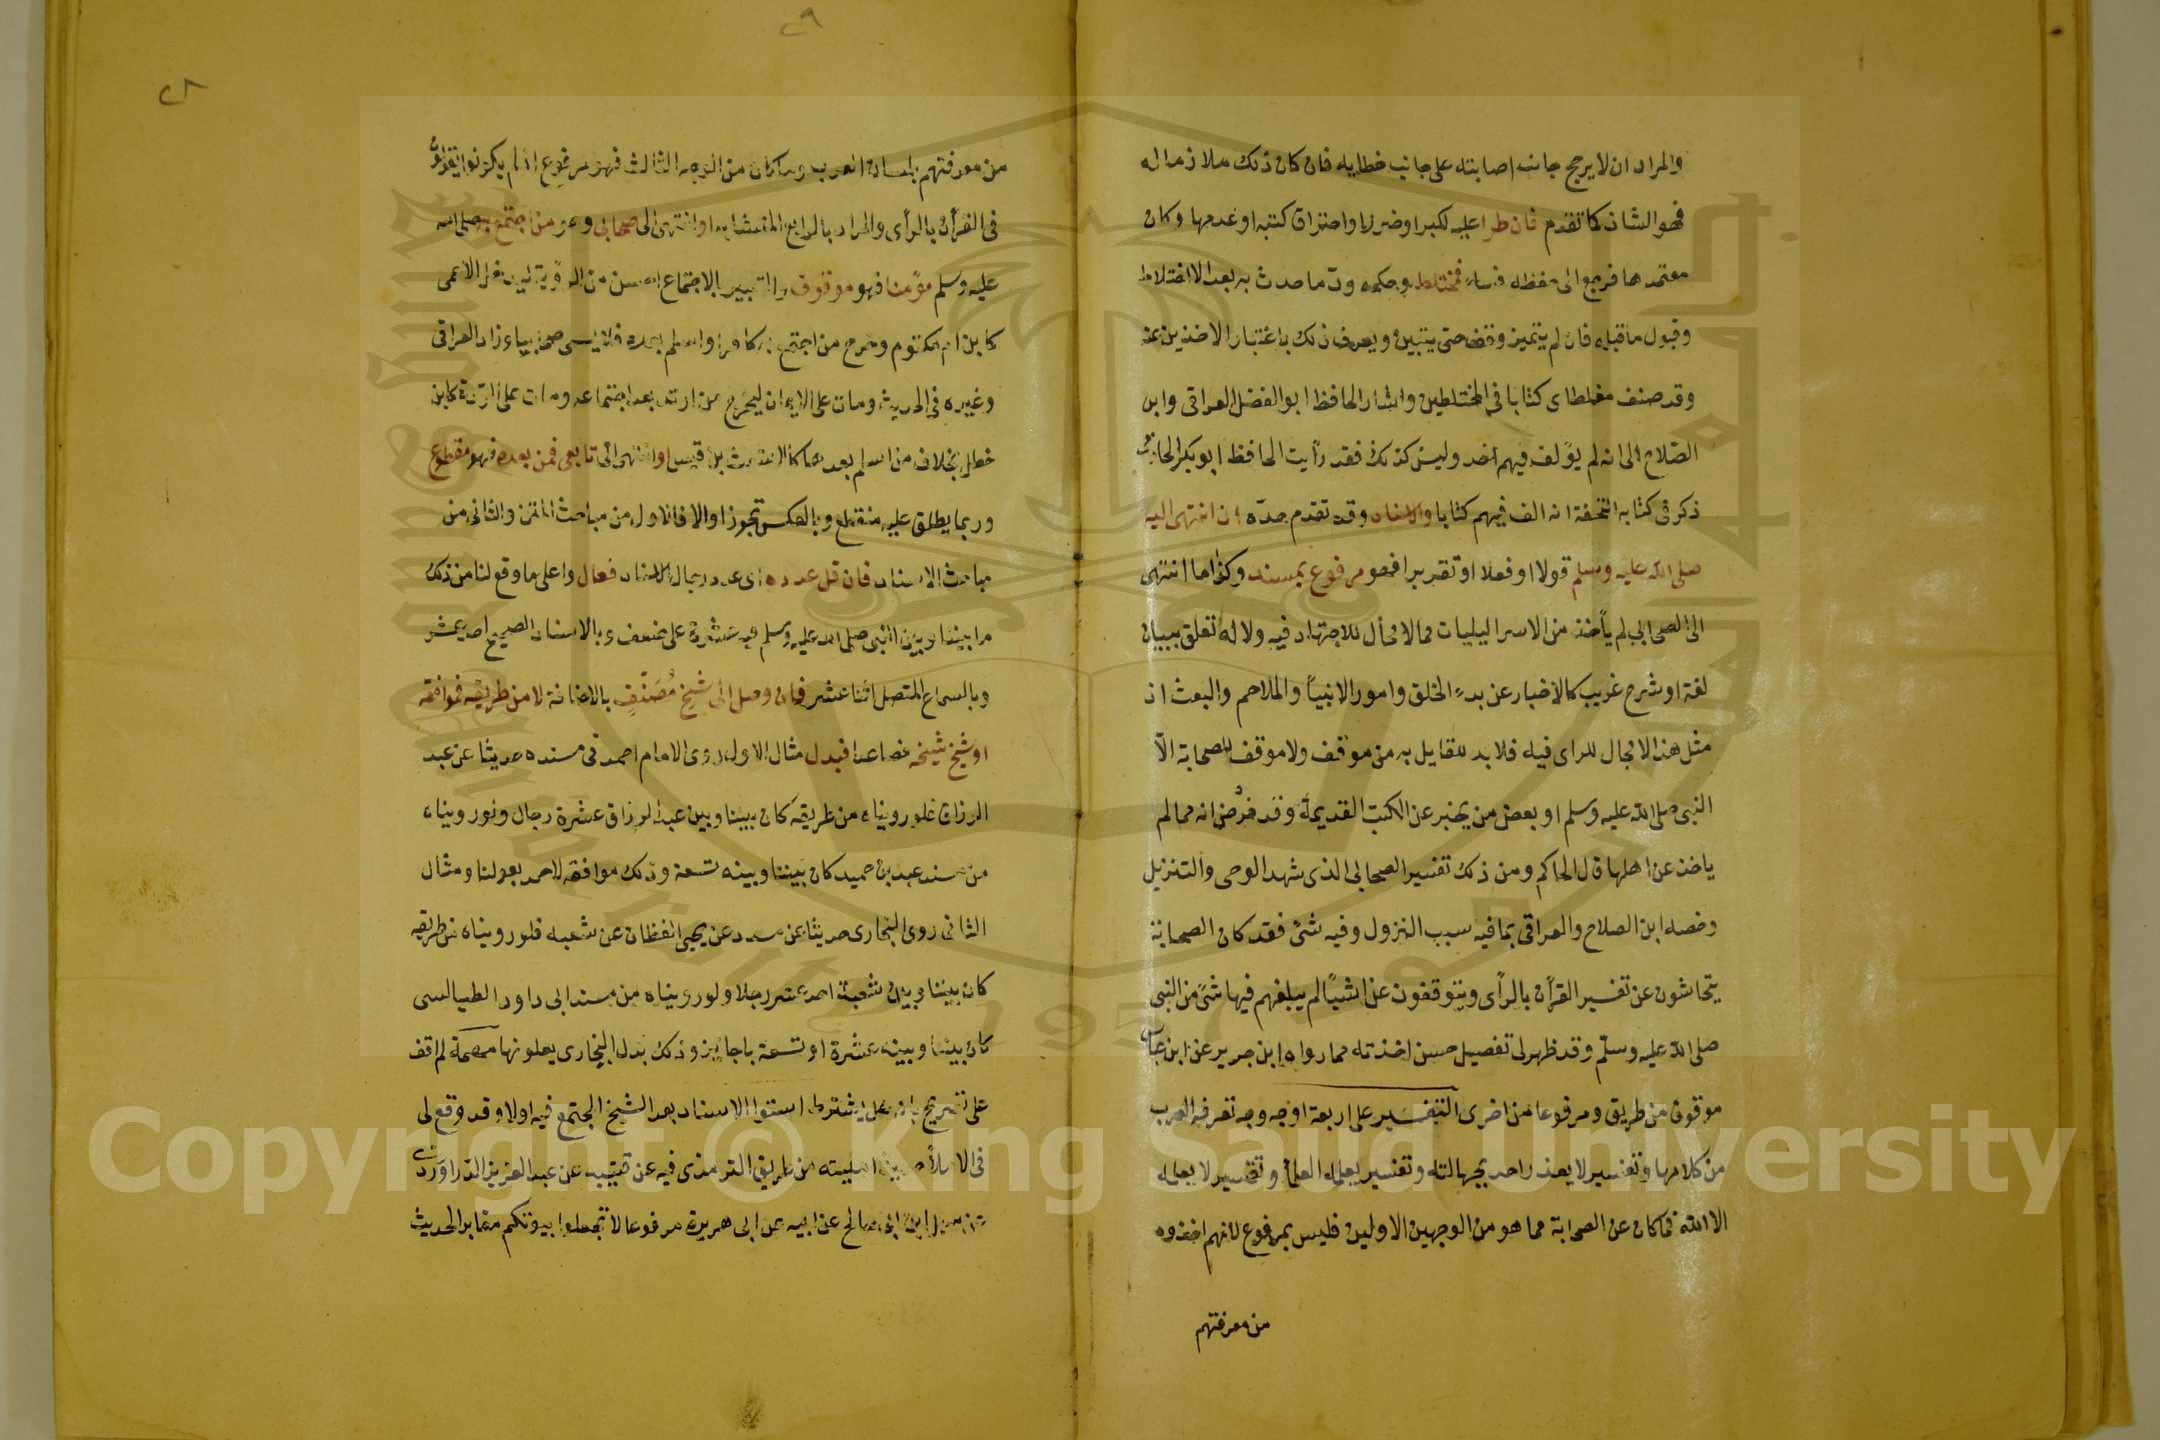 والمراد ان لا يرجح جانب اصابته على جانب خطايه فان كان ذلك ملازما له
فهو الشاذ كما تقدم فان طرا عليه لكبر او ضرر او احتراق كتبه او عدمها وكان
معتمدها فرجع الى حفظه فساء فمختلط وحكمه رد ما حدث به بعد الاختلاط
وقبول ما قبله فان لم يتميز وقف حتى يتبين ويعرف ذلك باعتبار الاخذين عنه
وقد صنف مغلطاى كتابا في المختلطين واشار الحافظ ابو الفضل العراقى وابن
الصلاح الى انه لم يؤلف فيهم احد وليس كذلك فقد رأيت الحافظ ابو بكر الحازمى
ذكر فى كتابه التحفة انه الف فيهم كتابا والاسناد وقد تقدم حده ان انتهى اليه
صلى الله عليه وسلم قولا او فعلا او تقريرا فهو مرفوع بمسند وكذا ما انتهى
الى الصحابى لم يأخذ من الاسراييليات مما لا مجال للاجتهاد فيه ولا له تعلق ببيان
لغة او شرح غريب كالاخبار عن بدء الخلق وامور الانبيا والملاحم والبعث اذ
مثل هذا لا مجال للراى فيه فلا بد للقايل به من موقف ولا موقف للصحابة الا
النبى صلى الله عليه وسلم او بعض من يخبر عن الكتب القديمة وقد فرض انه مما لم
ياخذ عن اهلها قال الحاكم ومن ذلك تفسير الصحابى الذى شهد الوحى والتنزيل
وخصه ابن الصلاح والعراقى بما فيه سبب النزول وفيه شئ فقد كان الصحابة
يتحاشون عن تفسير القرآن بالرأى ويتوقفون عن اشيا لم يبلغهم فيها شئ من النبى
صلى الله عليه وسلم وقد ظهر لى تفصيل حسن اخذته مما رواه ابن جرير عن ابن عباس
موقوفا من طريق ومرفوعا من اخرى التفسير على اربعة اوجه وجه تعرفه العرب
من كلامها وتفسير لا يعذر احد بجهالته وتفسير يعلمه العلما وتفسير لا يعلمه
الا الله فما كان عن الصحابة مما هو من الوجهين الاولين فليس بمرفوع لانهم اخذوه
من معرفتهم
٢٩
٢٨
من معرفتهم بلسان العرب وما كان من الوجه الثالث فهو مرفوع اذ لم يكونوا يقولون
فى القرآن بالرأى والمراد بالرابع المتشابه او انتهى الى صحابى وهو من اجتمع به صلى الله
عليه وسلم مؤمنا فهو موقوف والتعبير بالاجتماع احسن من الرؤية ليدخل الاعمى
كابن ام مكتوم وخرج من اجتمع به كافرا واسلم بعده فلا يسمى صحابيا وزاد العراقى
وغيره فى الحديث ومات على الايمان ليخرج من ارتد بعد اجتماعه ومات على الردة كابن
خطل بخلاف من اسلم بعدها كالاشعث بن قيس او انتهى الى تابعى فمن بعده فهو مقطوع
وربما يطلق عليه منقطع وبالعكس تجوزا والا فالاول من مباحث المتن والثانى من
مباحث الاسناد فان قل عدده اى عدد رجال الاسناد فعال واعلى ما وقع لنا من ذلك
ما بيننا وبين النبى صلى الله عليه وسلم فيه عشرة على ضعف وبالاسناد الصحيح احد عشر
وبالسماع المتصل اثنا عشر فان وصل الى شيخ مُصَنِّفٍ بالاضافة لا من طريقه فموافقة
او شيخ شيخه فصاعدا فبدل مثال الاول روى الامام احمد فى مسنده حديثا عن عبد
الرزاق فلو رويناه من طريقه كان بيننا وبين عبد الرزاق عشرة رجال ولو رويناه
من مسند عبد بن حميد كان بيننا وبينه تسعة وذلك موافقة لاحمد بعو لنا ومثال
الثانى روى البخارى حديثا عن مسدد عن يحيى القطان عن شعبه فلو رويناه من طريقه
كان بيننا وبين شعبة احد عشر رجلا ولو رويناه من مسند ابى داود الطيالسى
كان بيننا وبينه عشرة او تسعة باجايز وذلك بدل البخارى يعلو لنا مهمة لم اقف
على تصريح بانه هل يشترط استوا الاسناد بعد الشيخ المجتمع فيه اولا وقد وقع لى
فى الاملا حديث امليته من طريق الترمذى فيه عن قتيبه عن عبد العزيز الدراوردى
عن سهيل ابن ابى صالح عن ابيه عن ابى هريرة مرفوعا لا تجعلوا بيوتكم مقابر الحديث
Copyright © King Saud University
1957